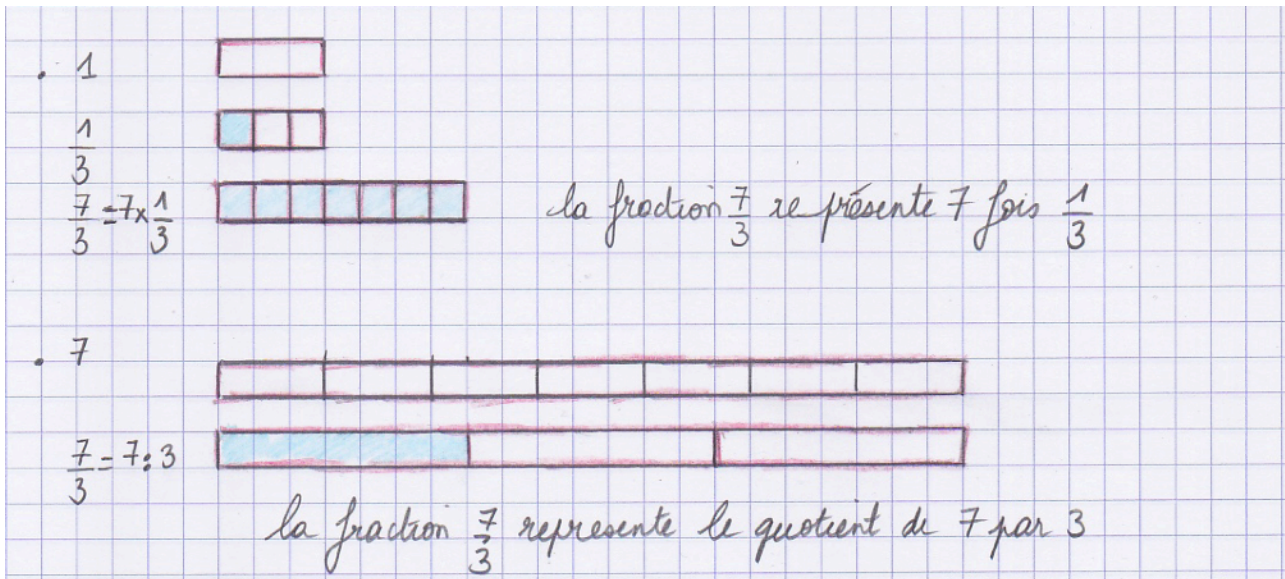 . 1
1/3
7/3 = 7 x 1/3 la fraction 7/3 re présente 7 fois 1/3
. 7
7/3 = 7 : 3
la fraction 7/3 represente le quotient de 7 par 3